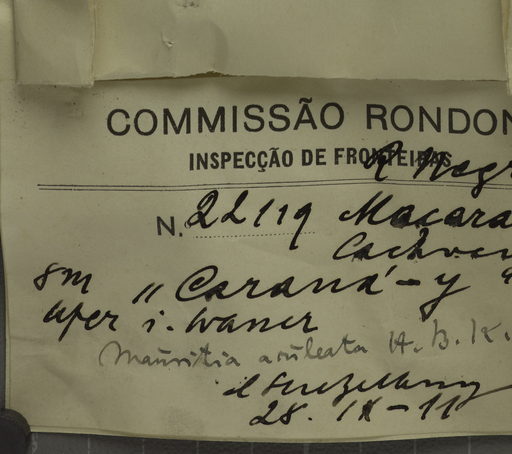 COMMISSÃO RONDON
INSPECÇÃO DE FRONTEIRAS
R. Negr
N. 22119 Macara
Cachoei
8m „Caraná-y"
Ufer i. Wasser
Mauritia aculeata H.B.K.
28. IX-11